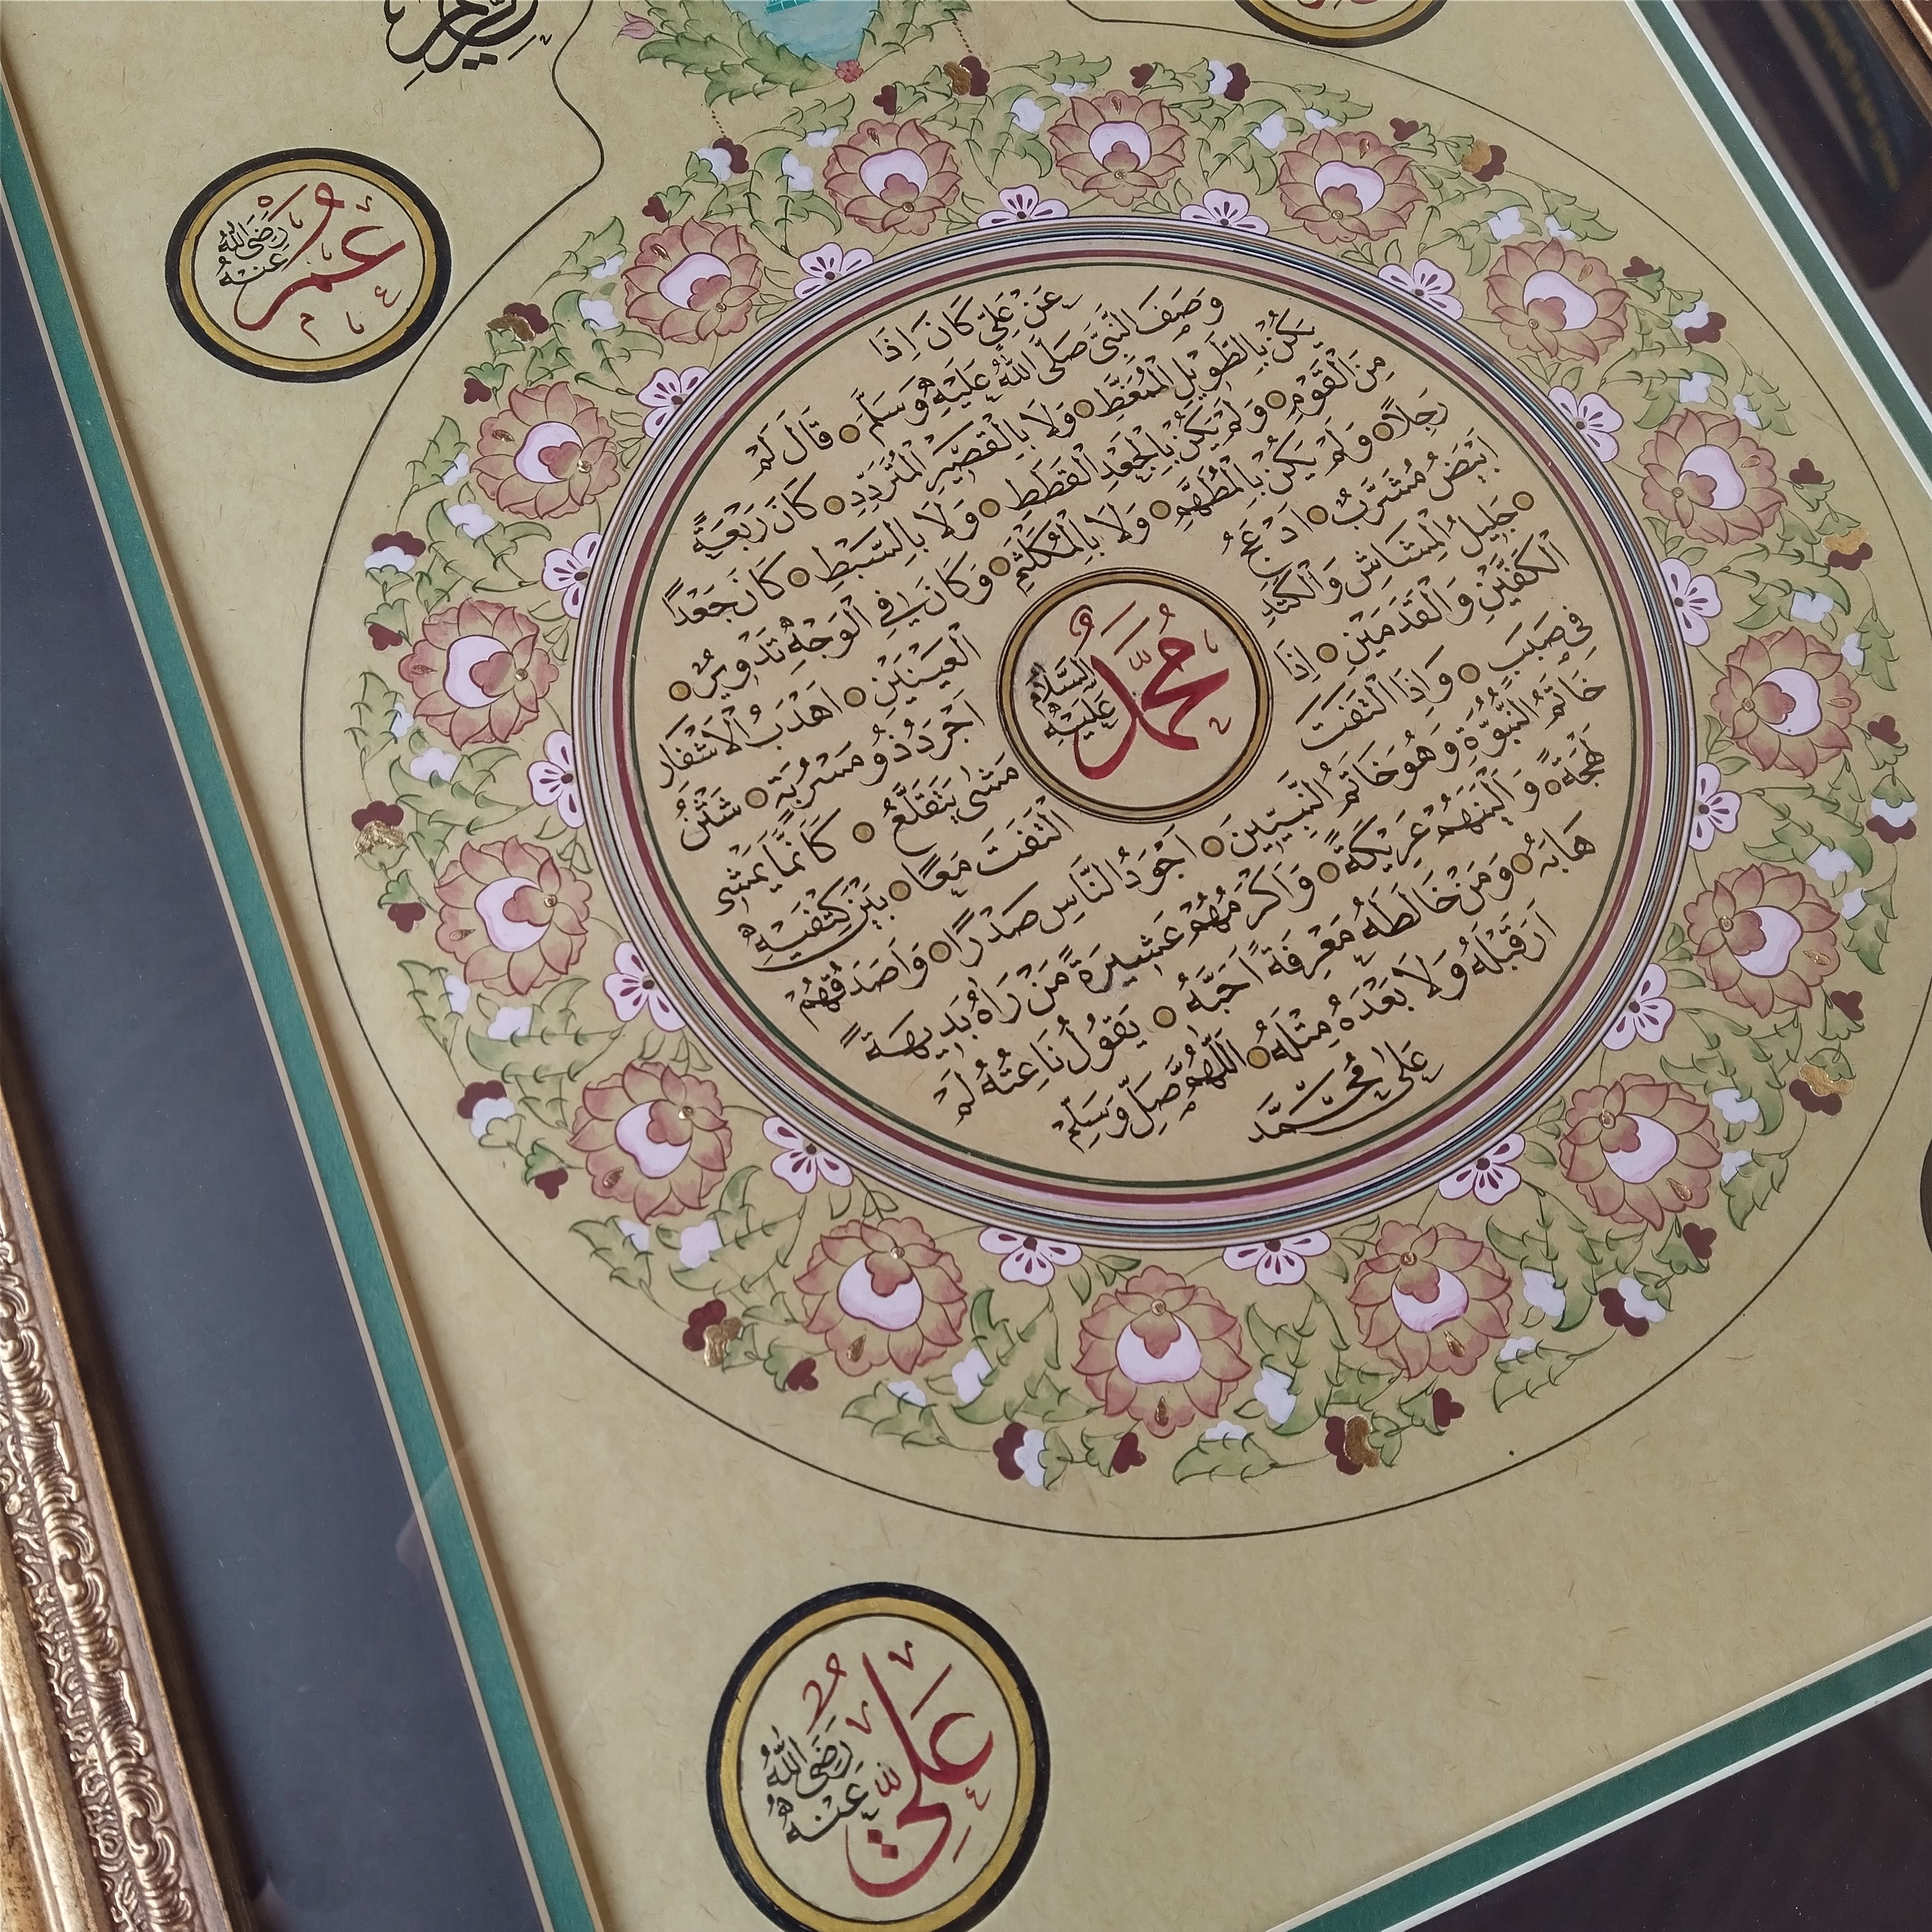 عُمَرْ
رَضِيَ اللهُ
عَنْهُ
عَنْ عَلِيٍّ كَانَ اِذَا
وَصَفَ النَّبِيَّ صَلَّى اللهُ عَلَيْهِ وَسَلَّمَ قَالَ لَمْ
يَكُنْ بِالطَّوِيلِ الْمُمَغَّطِ وَلَا بِالْقَصِيرِ الْمُتَرَدِّدِ كَانَ رَبْعَةً
مِنَ الْقَوْمِ وَلَمْ يَكُنْ بِالْجَعْدِ الْقَطَطِ وَلَا بِالسَّبْطِ كَانَ جَعْدًا
رَجِلًا وَلَمْ يَكُنْ بِالْمُطَهَّمِ وَلَا بِالْمُكَلْثَمِ وَكَانَ فِي الْوَجْهِ تَدْوِيرٌ
اَبْيَضُ مُشَرَّبٌ اَدْعَجُ الْعَيْنَيْنِ اَهْدَبُ الْاَشْفَارِ
جَلِيلُ الْمُشَاشِ وَالْكَتَدِ اَجْرَدُ ذُو مَسْرُبَةٍ شَثْنُ
الْكَفَّيْنِ وَالْقَدَمَيْنِ اِذَا مَشَى يَتَقَلَّعُ كَاَنَّمَا يَمْشِى
فِى صَبَبٍ وَاِذَا الْتَفَتَ الْتَفَتَ مَعًا بَيْنَ كَتِفَيْهِ
خَاتَمُ النُّبُوَّةِ وَهُوَ خَاتَمُ النَّبِيِّينَ اَجْوَدُ النَّاسِ صَدْرًا وَاَصْدَقُهُمْ
لَهْجَةً وَاَلْيَنُهُمْ عَرِيكَةً وَاَكْرَمُهُمْ عَشِيرَةً مَنْ رَاٰهُ بَدِيهَةً
هَابَهُ وَمَنْ خَالَطَهُ مَعْرِفَةً اَحَبَّهُ يَقُولُ نَاعِتُهُ لَمْ
اَرَ قَبْلَهُ وَلَا بَعْدَهُ مِثْلَهُ اَللّٰهُمَّ صَلِّ وَسَلِّمْ
عَلٰى مُحَمَّد
مُحَمَّدٌ
عَلَيْهِ السَّلَامُ
عَلِيّ
رَضِيَ اللهُ
عَنْهُ